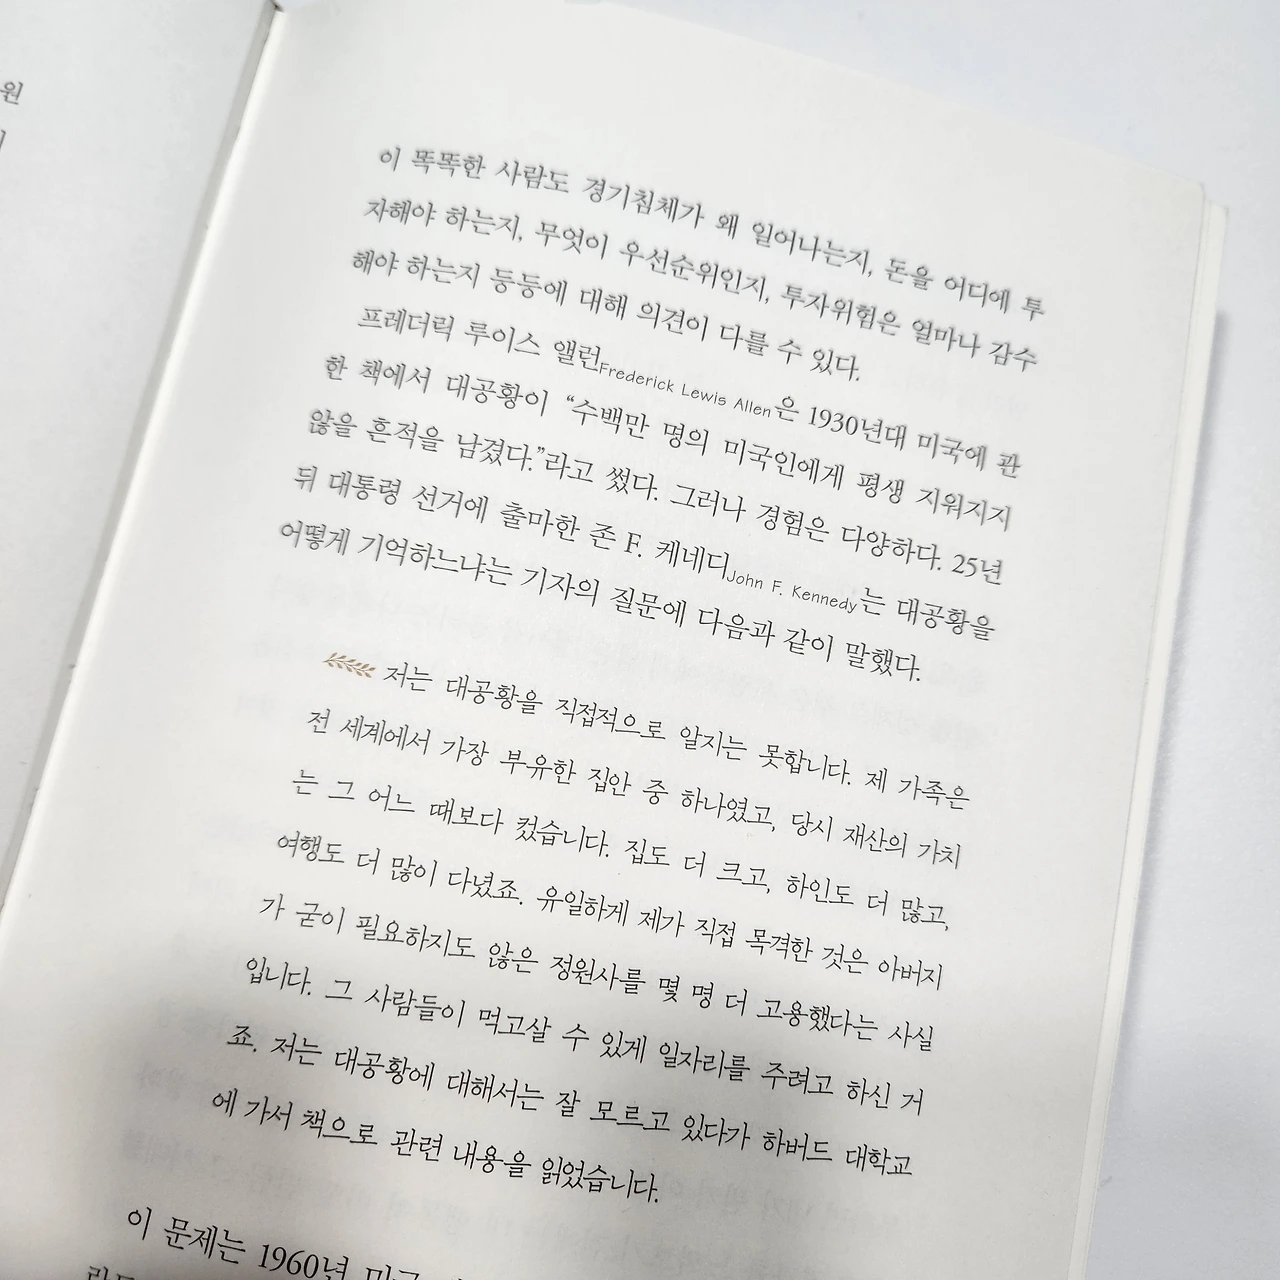 원
이 똑똑한 사람도 경기침체가 왜 일어나는지, 돈을 어디에 투
자해야 하는지, 무엇이 우선순위인지, 투자위험은 얼마나 감수
해야 하는지 등등에 대해 의견이 다를 수 있다.
프레더릭 루이스 앨런Frederick Lewis Allen은 1930년대 미국에 관
한 책에서 대공황이 “수백만 명의 미국인에게 평생 지워지지
않을 흔적을 남겼다.”라고 썼다. 그러나 경험은 다양하다. 25년
뒤 대통령 선거에 출마한 존 F. 케네디John F. Kennedy는 대공황을
어떻게 기억하느냐는 기자의 질문에 다음과 같이 말했다.
저는 대공황을 직접적으로 알지는 못합니다. 제 가족은
전 세계에서 가장 부유한 집안 중 하나였고, 당시 재산의 가치
는 그 어느 때보다 컸습니다. 집도 더 크고, 하인도 더 많고,
여행도 더 많이 다녔죠. 유일하게 제가 직접 목격한 것은 아버지
가 굳이 필요하지도 않은 정원사를 몇 명 더 고용했다는 사실
입니다. 그 사람들이 먹고살 수 있게 일자리를 주려고 하신 거
죠. 저는 대공황에 대해서는 잘 모르고 있다가 하버드 대학교
에 가서 책으로 관련 내용을 읽었습니다.
이 문제는 1960년 미국